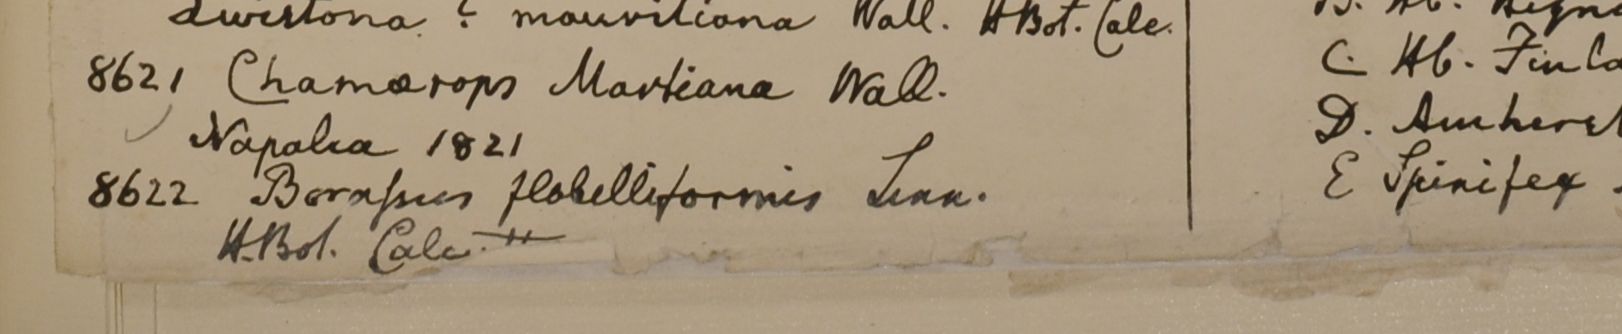 Livistona ? mauritiana Wall. H Bot. Calc.
8621 Chamærops Martiana Wall.
Napalia 1821
8622 Borassus flabelliformis Linn.
H. Bot. Calc. "
B. Hb.
C. Hb. Finla
D. Amherst
E Spinifex